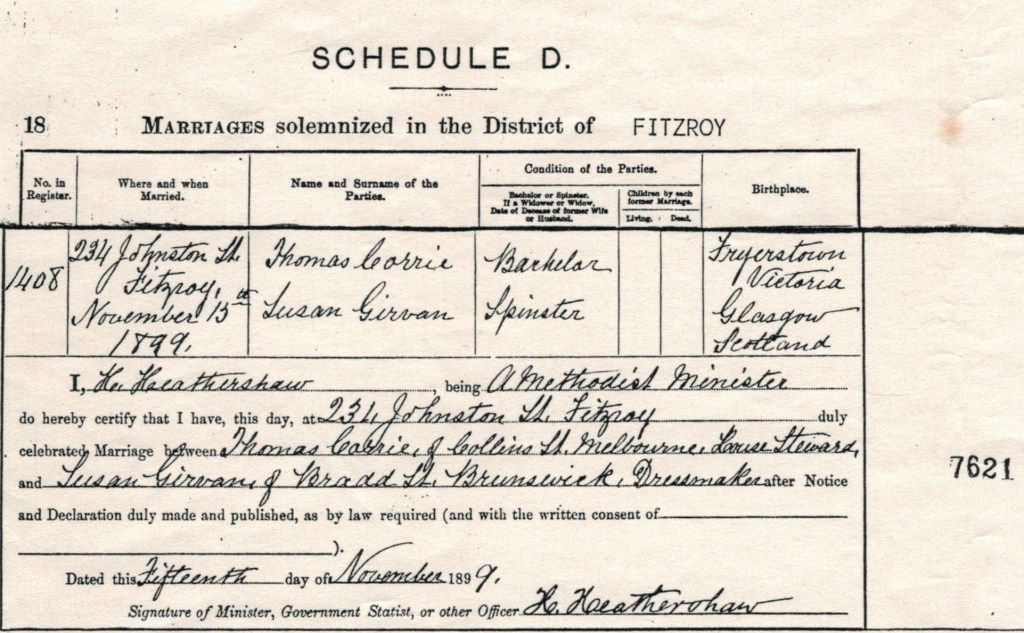 SCHEDULE D.
18 MARRIAGES solemnized in the District of FITZROY
No. in Register. Where and when Married. Name and Surname of the Parties. Condition of the Parties. Bachelor or Spinster. If a Widower or Widow, Date of Decease of former Wife or Husband. Children by each former Marriage. Living. Dead. Birthplace.
1408 234 Johnston St. Thomas Corrie Bachelor Fryerstown
Fitzroy, Victoria
November 15th Susan Girvan Spinster Glasgow
1899. Scotland
I, H. Heathershaw, being A Methodist Minister
do hereby certify that I have, this day, at 234, Johnston St. Fitzroy duly
celebrated Marriage between Thomas Corrie, of Collins St. Melbourne, Steward,
and Susan Girvan, of St. Brunswick, Dressmaker after Notice
and Declaration duly made and published, as by law required (and with the written consent of
).
Dated this Fifteenth day of November 1899.
Signature of Minister, Government Statist, or other Officer. H. Heathershaw
7621